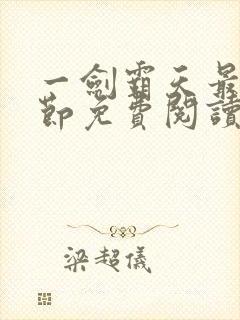 一劍霸天最
節免費閱讀
梁超儀